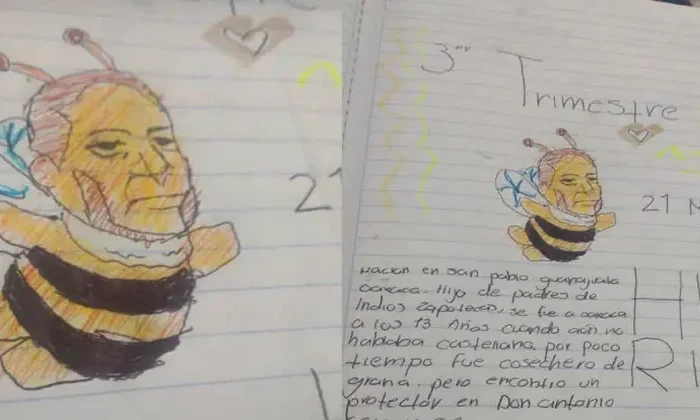 21
3er Trimestre
21 M
nacion en san pablo
oaxaca. Hijo de padres de
Indios zapotecas, se fue a oaxaca
a los 13 Años cuando aún no
hablaba castellana por poco
tiempo fue cosechero de
grana. pero encontro un
protector en Don antonio
H
RI